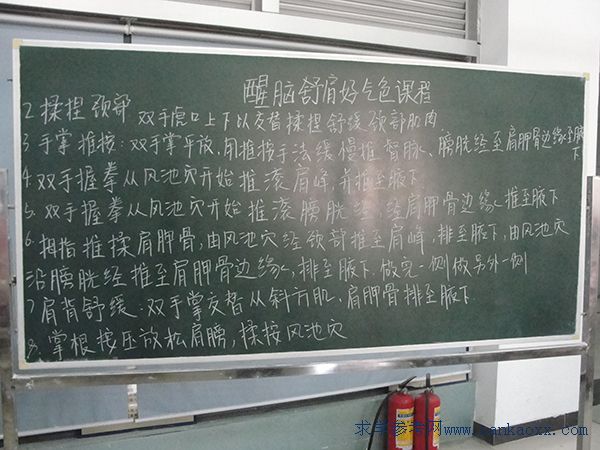 醒脑舒肩好气色课程
2 揉捏颈部 双手虎口上下以交替揉捏舒缓颈部肌肉
3 手掌推按:双手掌平放,用推按手法缓慢推督脉、膀胱经至肩胛骨边缘至腋下
4.双手握拳从风池穴开始推滚肩峰,并推至腋下
5.双手握拳从风池穴开始推滚膀胱经,经肩胛骨边缘推至腋下
6.拇指推揉肩胛骨,由风池穴经颈部推至肩峰,排至腋下,由风池穴
沿膀胱经推至肩胛骨边缘,排至腋下.做完一侧做另外一侧
7肩背舒缓.双手掌交替从斜方肌,肩胛骨排至腋下.
8.掌根按压放松肩膀,揉按风池穴
求学参考网www.qankaoxx.com